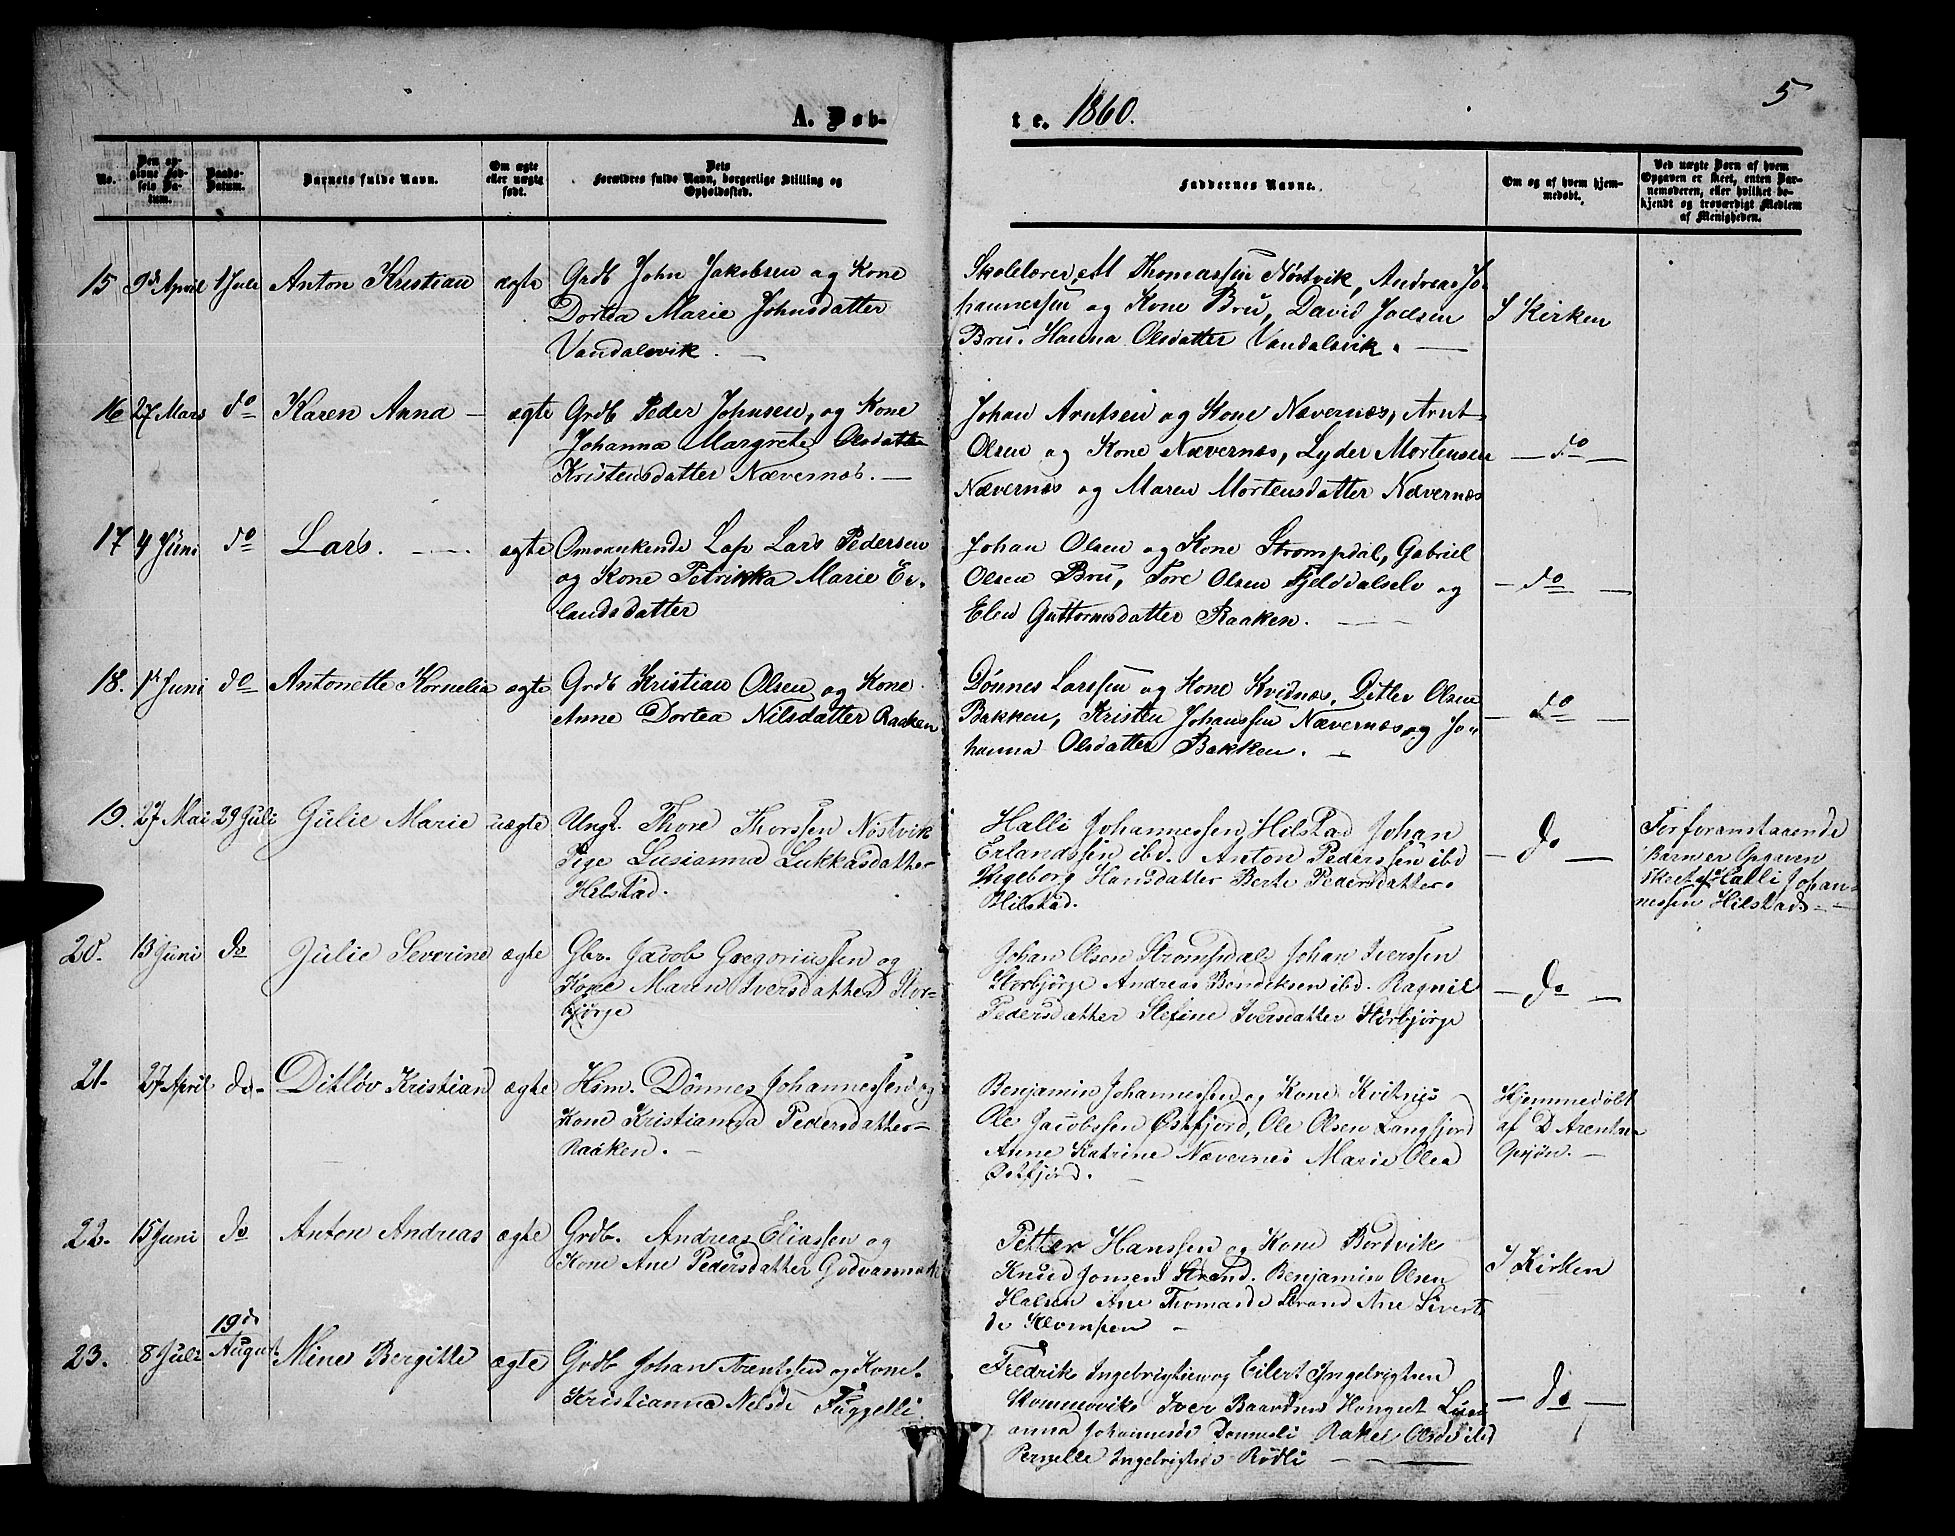 5
A. Døb-
te. 1860.
No.
Den op-
givne Fød-
sels Da-
tum.
Daabs-
Datum.
Barnets fulde Navn.
Om ægte
eller uægte
født.
Dets
Forældres fulde Navn, borgerlige Stilling og
Opholdssted.
Faddernes Navne.
Om og af hvem hjem-
medøbt.
Ved uægte Born af hvem
Opgaven er skeet, enten Bar-
nemoderen, eller hvilket be-
kjendt og troværdigt Medlem
af Menigheden.
15 9de April 1 Juli Anton Kristian ægte Grdb John Jakobsen og Kone
Dortea Marie Johnsdatter
Vandalsvik.
Skolelærer M Thomassen Nøstvik, Andreas Jo-
hannessen og Kone Bru, David Joelsen
Bru. Hanna Olsdatter Vandalsvik.
I Kirken
16 27 Mars do Karen Anna ægte Grdb Peder Johnsen, og Kone
Johanna Margrete Olsdatter
Kristensdatter Nævernes.
Johan Arntsen og Kone Nævernæs, Arnt
Olsen og Kone Nævernes, Lyder Mortensen
Nævernes og Maren Mortensdatter Nævernæs
do
17 4 Juni do Lars. ægte Omvankende Lap Lars Pedersen
og Kone Petrikka Marie Er-
landsdatter
Johan Olsen og Kone Strompdal, Gabriel
Olsen Bru, Tore Olsen Fjeldalselv og
Elen Guttormsdatter Raaken.
do
18. 1ste Juni do Antonette Kornelia ægte Grdb Kristian Olsen og Kone
Anne Dortea Nilsdatter Raaken
Dønnes Larssen og Kone Kvidnæs, Ditlev Olsen
Bakken, Kristen Johanssen Nævernæs og Jo-
hanna Olsdatter Bakken.
do
19. 27 Mai 29 Juli Julie Marie uægte Ungk. Thore Thorssen Nøstvik
Pige Lusianna Lukkasdatter
Hilstad.
Halli Johannessen Hilstad Johan
Erlandssen ibd. Anton Pederssen ibd
Ingeborg Hansdatter Berte Pedersdatter
Hilstad.
do
For foranstaaende
Barn er Opgaven
skeet af Halli Johan-
nessen Hilstad
20. 13 Juni do Julie Severine ægte Gbr. Jacob Gregoriussen og
Kone Maren Iversdatter Stor-
bjørge
Johan Olsen Strompdal Johan Iverssen
Storbjørge Andreas Bendiksen ibd. Ragnil
Pedersdatter Stefine Iversdatter Storbjørge
do
21. 27 April do Ditløv Kristian ægte Hsm. Dønnes Johannessen og
Kone Kristianna Pedersdatter
Raaken.
Benjamin Johannessen og Kone Kvitnes
Ole Jacobssen Østfjord, Ole Olsen Langfjord
Anne Katrine Nævernes Marie Olea
Østfjord.
Hjemmedøbt
af D Arentsen
Gaasjøn.
22. 15 Juni do Anton Andreas ægte Grdb. Andreas Eliassen og
Kone Ane Pedersdatter Godvasmark
Petter Hanssen og Kone Bordvik
Knud Jonsen Strand. Benjamin Olsen
Halsen Ane Thomasd. Strand Ane Sivert
d. Klompen
I Kirken
23. 8 Juli 19de
August Mine Bergitte ægte Grdb Johan Arentsen og Kone
Kristianna Nelsd. Fuggelli
Fredrik Ingebrigtsen og Eilert Ingebrigtsen
Rommovik Iver Baardsen Hongset Lusi
anna Johannesd. Dønnesli Rakel Olsd. ibd
Pernelle Ingebrigtsd. Rødli
do